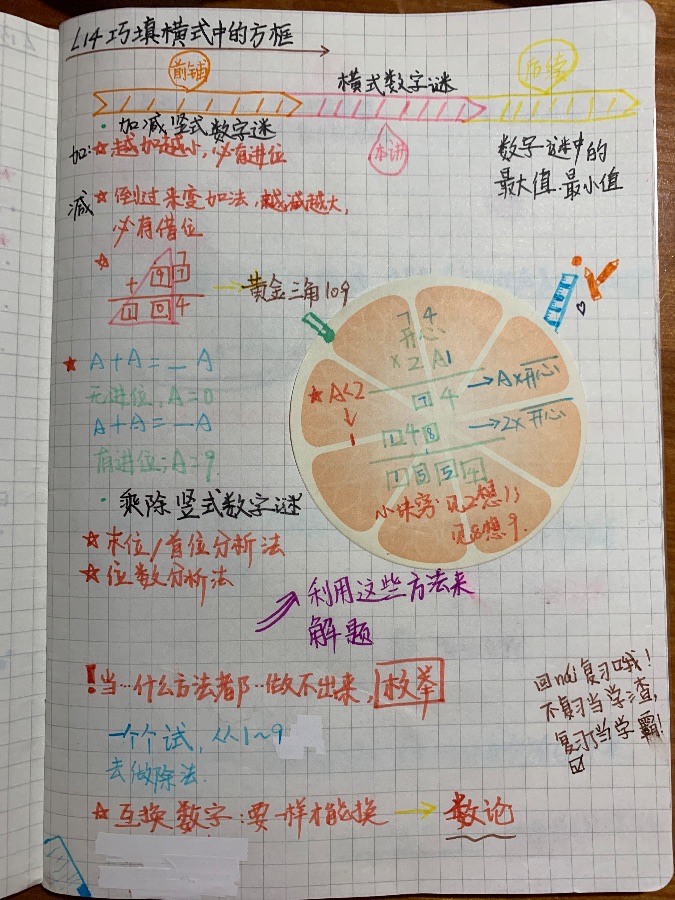 L14 巧填横式中的方框
前铺
横式数字谜
后续
·加减竖式数字迷
本讲
数字谜中的
最大值.最小值
加:☆越加越小,必有进位
减☆倒过来变加法,越减越大,
必有借位
☆ 7
+ 9 7
1 0 4
黄金三角109
7 4
开心
× 2 A1
☆A<2
↓
1
7 4 →A×开心
1 4 8 →2×开心
1 5 5 4
小妹窍:见2想1;
见8想9.
★ A+A=_A
无进位,A=0
A+A=_A
有进位;A=9.
·乘除竖式数字谜
☆末位/首位分析法
☆位数分析法
利用这些方法来
解题
!当…什么方法都…做不出来,枚举
一个个试,从1~9
去做除法.
☆互换数字:要一样才能换→数论
复习哦!
不复习当学渣,
复习当学霸!
☑